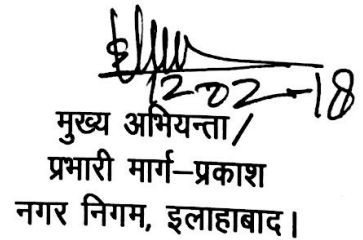 12-02-18
मुख्य अभियन्ता/
प्रभारी मार्ग–प्रकाश
नगर निगम, इलाहाबाद।